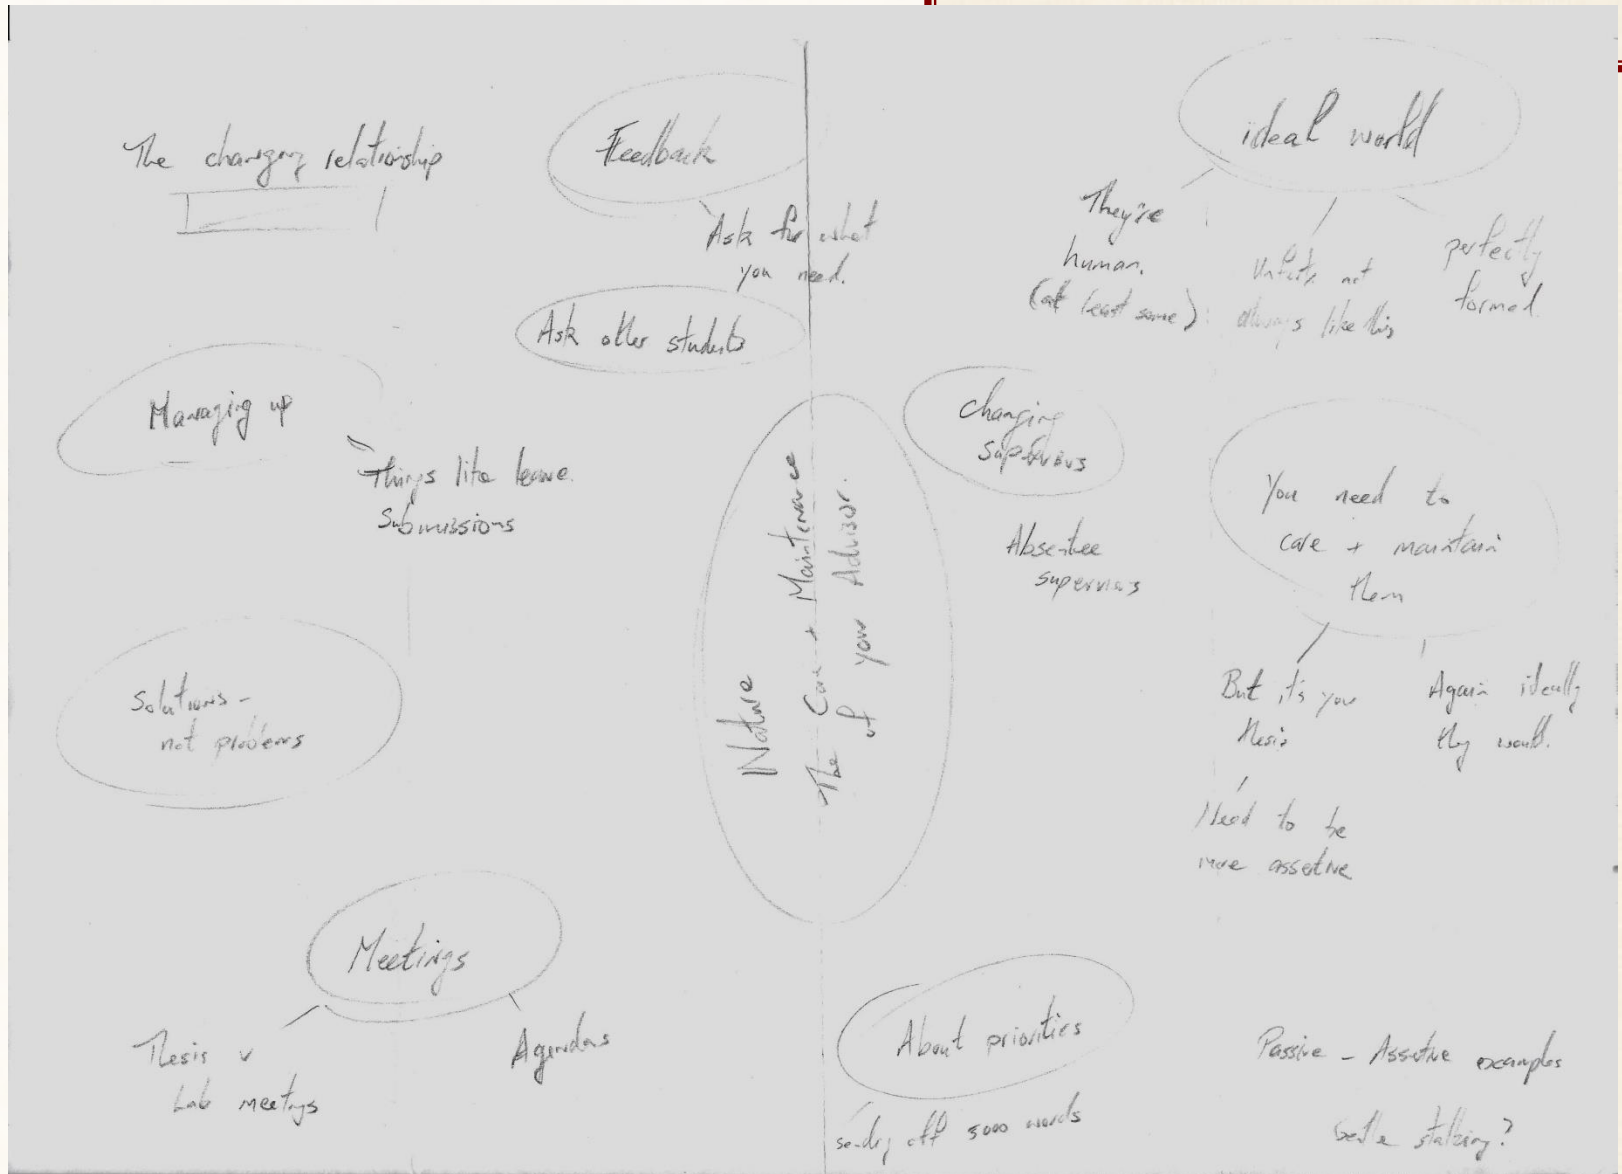 The changing relationship
Feedback
Ask for what
you need.
Ask other students
Managing up
Things like leave
Submissions
Solutions -
not problems
Meetings
Thesis v
Lab meetings
Agendas
Nature
The Care + Maintenance
of your Advisor.
ideal world
They're
human.
(at least some)
not
always like this
perfectly
formed.
Changing
supervisors
Absentee
supervisors
You need to
care + maintain
them
But it's your
thesis
Again ideally
they would.
Need to be
more assertive
About priorities
sending off 5000 words
Passive - Assertive examples
Gentle stalking?